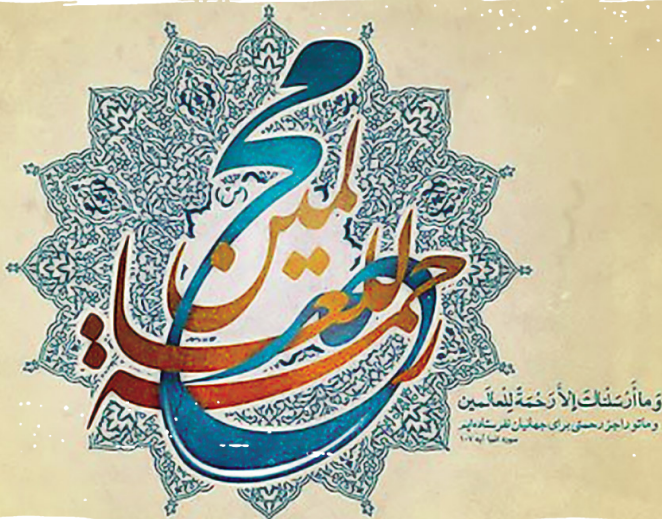 محمد
رحمة للعالمین
وَ ما أَرْسَلْناكَ إِلاَّ رَحْمَةً لِلْعالَمين
و ما تو را جز رحمتی برای جهانیان نفرستاده‌ایم
سوره انبیا آیه ۱۰۷